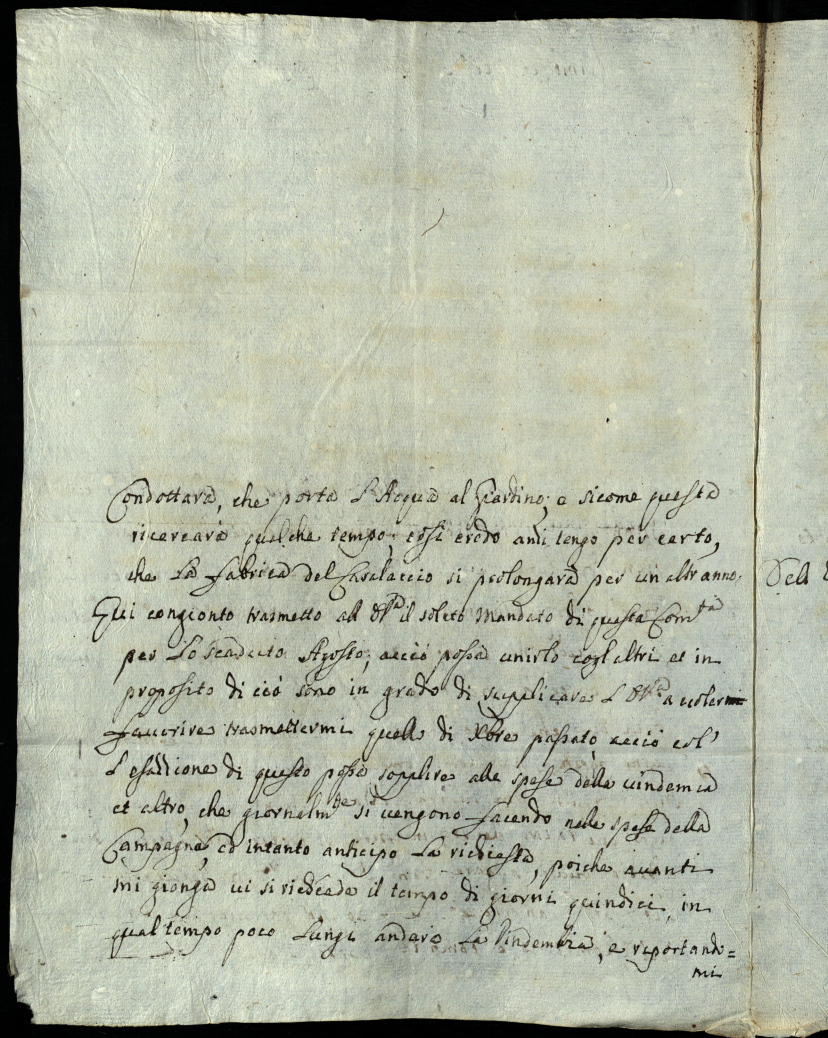 Condottara, che porta l'Acqua al Giardino; e sicome questa
ricercara qualche tempo; così credo anzi tengo per certo,
che la fabrica del Casalaccio si prolongara per un altr anno.
Qui congionto trasmetto all il solito Mandato di questa Com.tà
per lo scaduto Agosto, acciò possa unirlo cogl'altri et in
proposito di ciò sono in grado di supplicare a voler
favorire trasmettermi quello di Xbre passato, acciò coll'
Esazzione di questo possa sopplire alle spese della vindemia
et altro, che giornalm.te si vengono facendo nelle spese della
Campagna, ed intanto anticipo la richiesta, poiche avanti
mi gionga vi si richiede il tempo di giorni quindici, in
qual tempo poco lungi andarà la Vindembia, e riportando=
mi
Dell